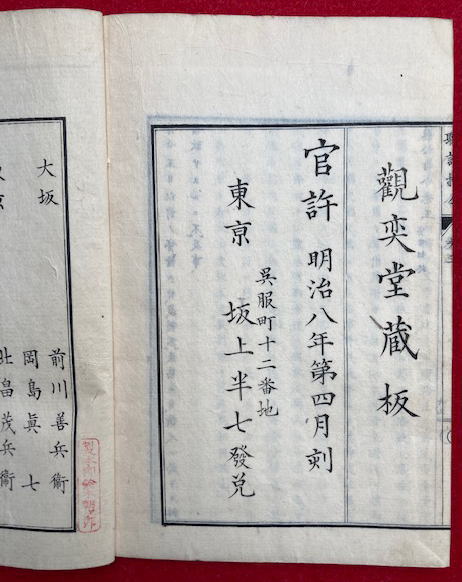 觀奕堂蔵板
官許 明治八年第四月刻
呉服町十二番地
東京 坂上半七發兌
大坂
前川善兵衞
岡島眞七
北畠茂兵衞